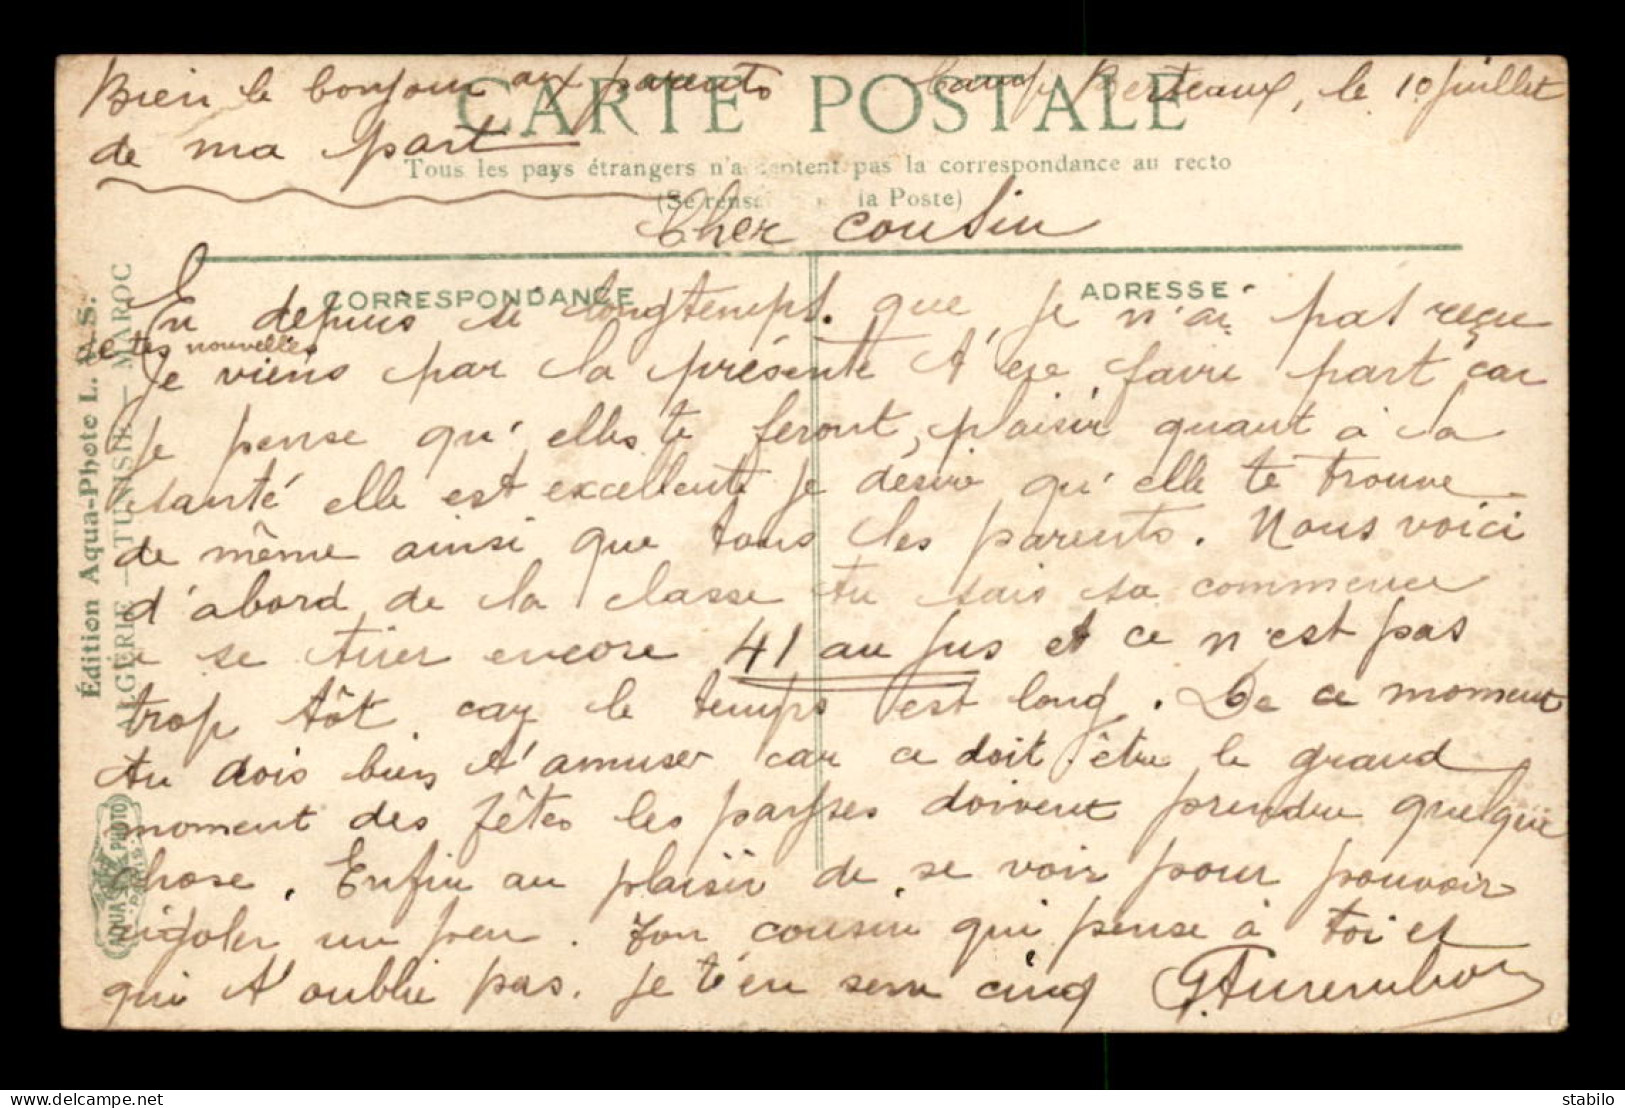 Bien le bonjour aux parents
de ma part
CARTE POSTALE
Camp Berteaux, le 10 juillet
Tous les pays étrangers n'acceptent pas la correspondance au recto
(Se rens la Poste)
Cher cousin
CORRESPONDANCE
ADRESSE
En depuis si longtemps que je n'ai pas reçu
de tes nouvelles
je viens par la présente t'en faire part car
je pense qu'elles te feront plaisir quant à la
santé elle est excellente je désire qu'elle te trouve
de même ainsi que tous les parents. Nous voici
d'abord de la classe tu sais sa commence
a se tirer encore 41 au jus et ce n'est pas
trop tôt car le temps est long. De ce moment
tu dois bien t'amuser car ce doit être le grand
moment des fêtes les payses doivent prendre quelque
chose. Enfin au plaisir de se voir pour pouvoir
rigoler un peu. Ton cousin qui pense à toi et
qui t'oublie pas. Je t'en serre cinq
Édition Aqua-Photo L. V. S.
ALGÉRIE — TUNISIE — MAROC
AQUA PHOTO
PARIS
www.delcampe.net
stabilo